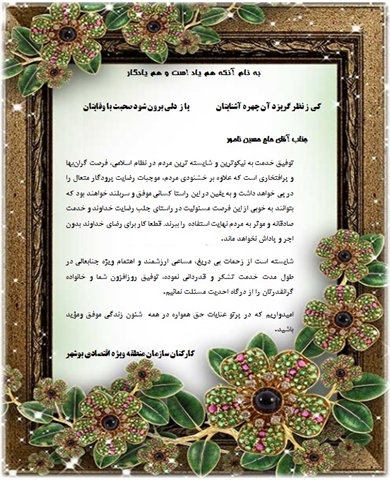 به نام آنکه هم یاد است و هم یادگار
کی ز نظر گریزد آن چهره آشنایتان یا ز دلی برون شود صحبت با وفایتان
جناب آقای حاج حسین نامور
توفیق خدمت به نیکوترین و شایسته ترین مردم در نظام اسلامی، فرصت گران‌بها
و پرافتخاری است که علاوه بر خشنودی مردم، موجبات رضایت پرودگار متعال را
در پی خواهد داشت و به یقین در این راستا کسانی موفق و سربلند خواهند بود که
بتوانند به خوبی از این فرصت مسئولیت در راستای جلب رضایت خداوند و خدمت
صادقانه و موثر به مردم نهایت استفاده را ببرند. قطعا کار برای رضای خداوند بدون
اجر و پاداش نخواهد ماند.
شایسته است از زحمات بی دریغ، مساعی ارزشمند و اهتمام ویژه جنابعالی در
طول مدت خدمت تشکر و قدردانی نموده، توفیق روزافزون شما و خانواده
گرانقدرتان را از درگاه احدیت مسئلت نمائیم.
امیدواریم که در پرتو عنایات حق همواره در همه شئون زندگی موفق ومؤید
باشید.
کارکنان سازمان منطقه ویژه اقتصادی بوشهر